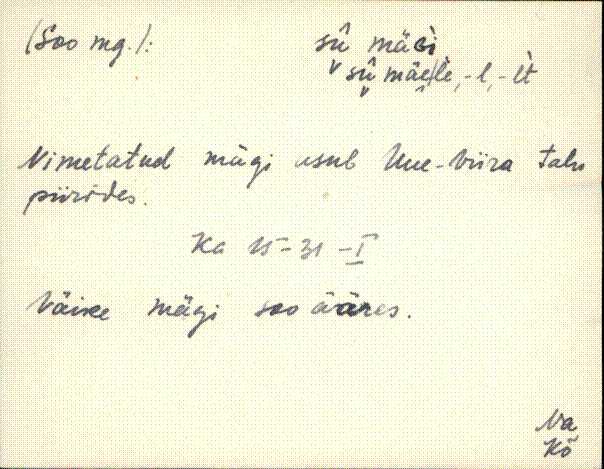 (Soo mg.): sū̂ mäɢì
sū̂ mäe̮lè, -l, -lt
Nimetatud mägi asub Uue-Viira talu
piirides.
Ka 15-31-I
Väike mägi soo ääres.
Va
Kõ